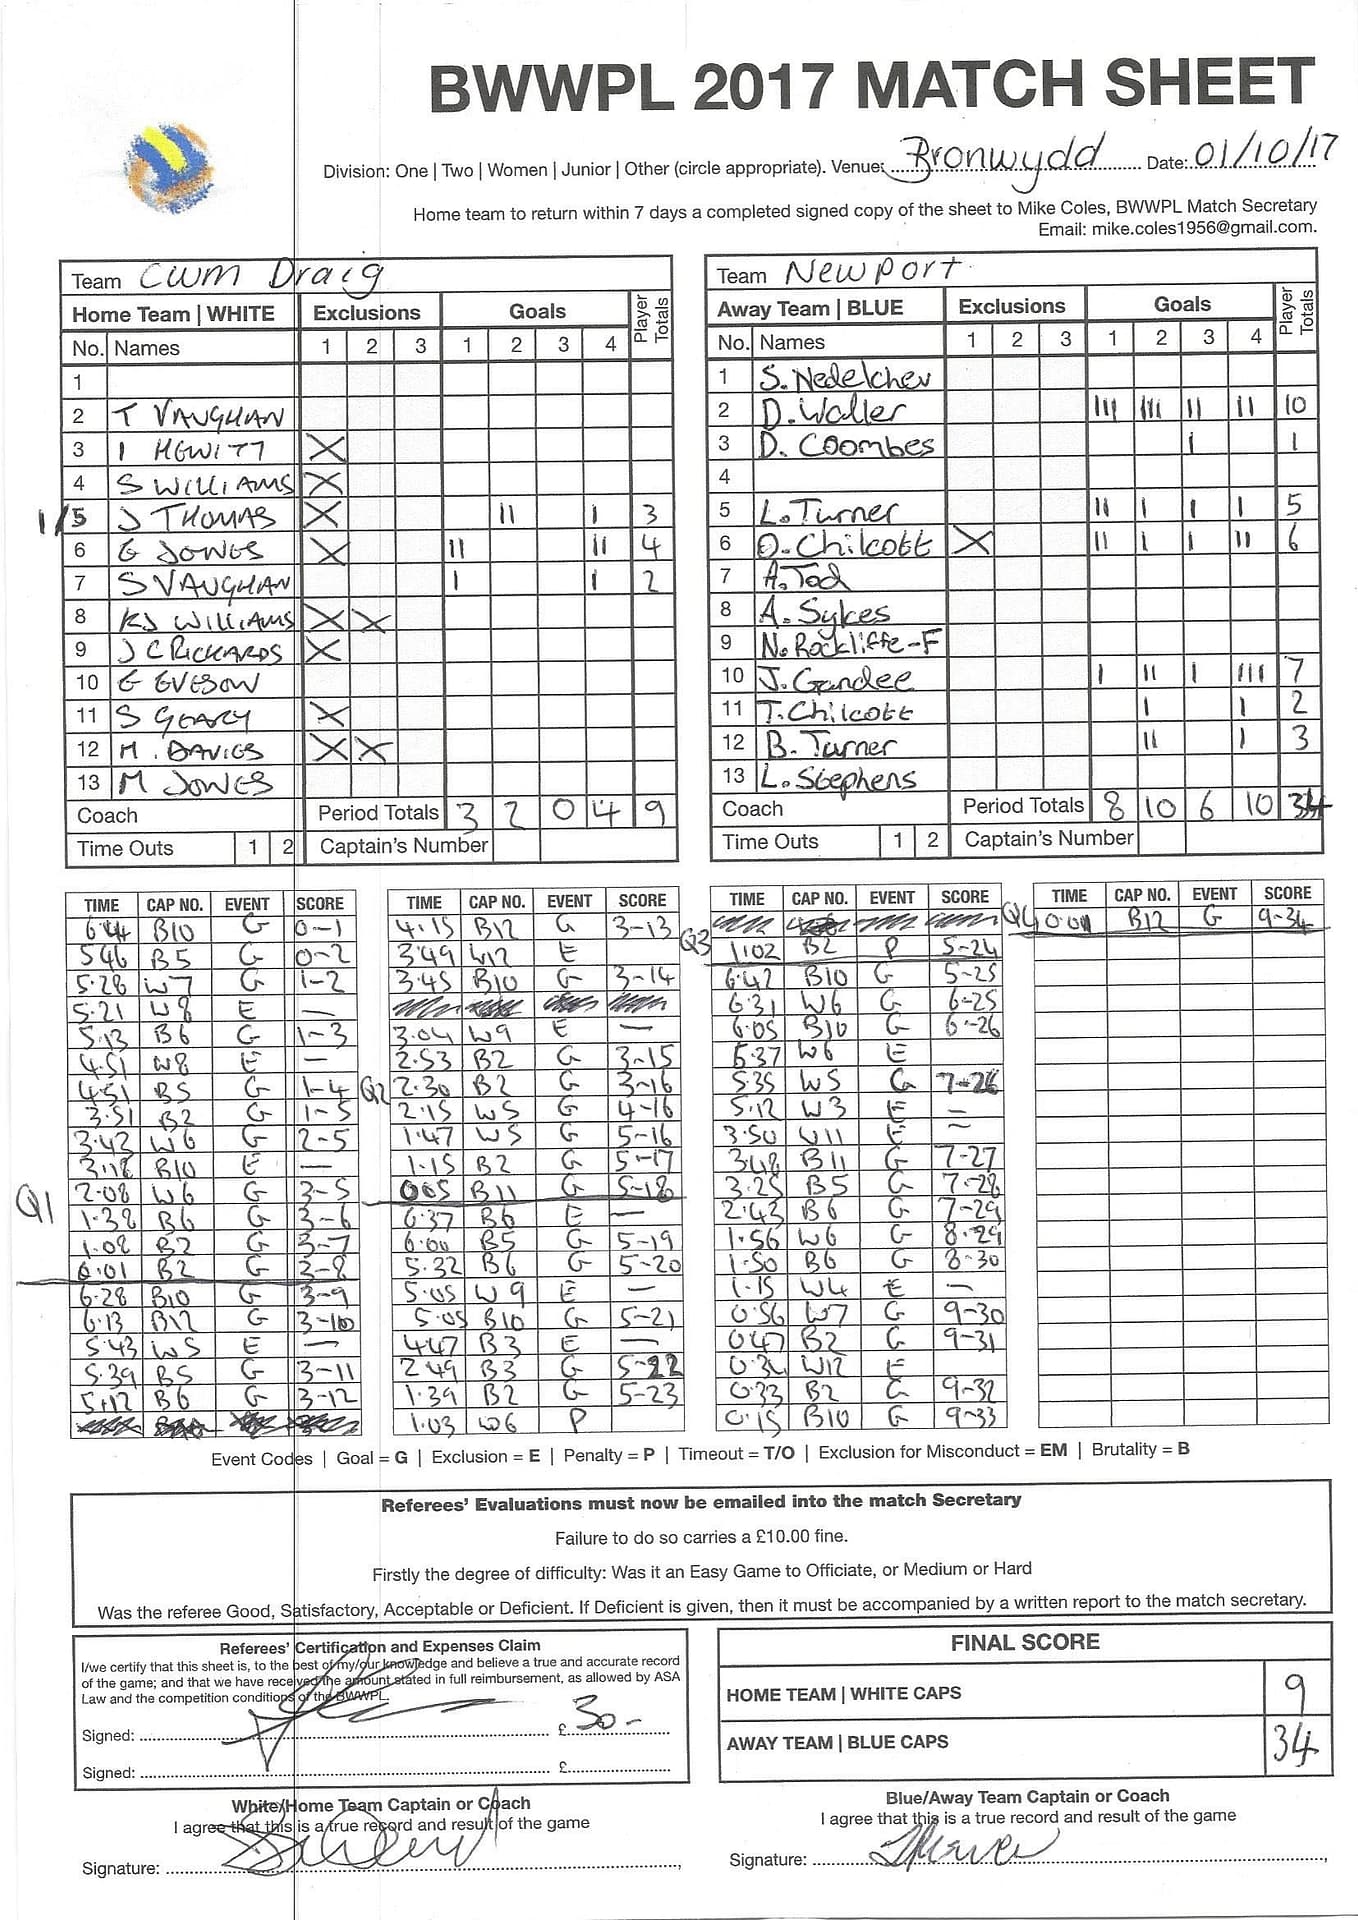 BWWPL 2017 MATCH SHEET
Division: One | Two | Women | Junior | Other (circle appropriate). Venue: Bronwydd Date: 01/10/17
Home team to return within 7 days a completed signed copy of the sheet to Mike Coles, BWWPL Match Secretary
Email: mike.coles1956@gmail.com.
Team Cwm Draig
Home Team | WHITE Exclusions Goals Player Totals
No. Names 1 2 3 1 2 3 4
1
2 T VAUGHAN
3 I HEWITT X
4 S WILLIAMS X
1/5 J THOMAS X II I 3
6 G JONES X II II 4
7 S VAUGHAN I I 2
8 KJ WILLIAMS X X
9 J C RICKARDS X
10 G EVESON
11 S GEARY X
12 M. DAVIES X X
13 M JONES
Coach Period Totals 3 2 0 4 9
Time Outs 1 2 Captain's Number
Team Newport
Away Team | BLUE Exclusions Goals Player Totals
No. Names 1 2 3 1 2 3 4
1 S. Nedelchev
2 D. Waller III III II II 10
3 D. Coombes I 1
4
5 L. Turner II I I I 5
6 O. Chilcott X II I I II 6
7 A. Tod
8 A. Sykes
9 N. Rockliffe-F
10 J. Gandee I II I III 7
11 T. Chilcott I I 2
12 B. Turner II I 3
13 L. Stephens
Coach Period Totals 8 10 6 10 34
Time Outs 1 2 Captain's Number
TIME CAP NO. EVENT SCORE
6.44 B10 G 0-1
5.46 B5 G 0-2
5.28 W7 G 1-2
5.21 W8 E —
5.13 B6 G 1-3
4.51 W8 E —
4.51 B5 G 1-4
3.51 B2 G 1-5
3.43 W6 G 2-5
3.18 B10 E —
2.08 W6 G 3-5
Q1
1.38 B6 G 3-6
1.08 B2 G 3-7
0.01 B2 G 3-8
6.28 B10 G 3-9
6.13 B12 G 3-10
5.43 W5 E —
5.39 B5 G 3-11
5.12 B6 G 3-12
TIME CAP NO. EVENT SCORE
4.15 B12 G 3-13
3.49 W12 E
3.45 B10 G 3-14
3.04 W9 E —
2.53 B2 G 3-15
Q2 2.30 B2 G 3-16
2.15 W5 G 4-16
1.47 W5 G 5-16
1.15 B2 G 5-17
0.05 B11 G 5-18
6.37 B6 E —
6.00 B5 G 5-19
5.32 B6 G 5-20
5.05 W9 E —
5.05 B10 G 5-21
4.47 B3 E —
2.49 B3 G 5-22
1.39 B2 G 5-23
1.03 W6 P
TIME CAP NO. EVENT SCORE
Q3
1.02 B2 P 5-24
6.42 B10 G 5-25
6.31 W6 G 6-25
6.05 B10 G 6-26
5.37 W6 E
5.35 W5 G 7-26
5.12 W3 E —
3.50 W11 E —
3.48 B11 G 7-27
3.25 B5 G 7-28
2.43 B6 G 7-29
1.56 W6 G 8-29
1.50 B6 G 8-30
1.15 W4 E —
0.56 W7 G 9-30
0.47 B2 G 9-31
0.34 W12 E
0.33 B2 G 9-32
0.15 B10 G 9-33
TIME CAP NO. EVENT SCORE
Q4 0.01 B12 G 9-34
Event Codes | Goal = G | Exclusion = E | Penalty = P | Timeout = T/O | Exclusion for Misconduct = EM | Brutality = B
Referees' Evaluations must now be emailed into the match Secretary
Failure to do so carries a £10.00 fine.
Firstly the degree of difficulty: Was it an Easy Game to Officiate, or Medium or Hard
Was the referee Good, Satisfactory, Acceptable or Deficient. If Deficient is given, then it must be accompanied by a written report to the match secretary.
Referees' Certification and Expenses Claim
I/we certify that this sheet is, to the best of my/our knowledge and believe a true and accurate record
of the game; and that we have received the amount stated in full reimbursement, as allowed by ASA
Law and the competition conditions of the BWWPL.
Signed: £ 30-
Signed: £
FINAL SCORE
HOME TEAM | WHITE CAPS 9
AWAY TEAM | BLUE CAPS 34
White/Home Team Captain or Coach
I agree that this is a true record and result of the game
Signature:
Blue/Away Team Captain or Coach
I agree that this is a true record and result of the game
Signature: